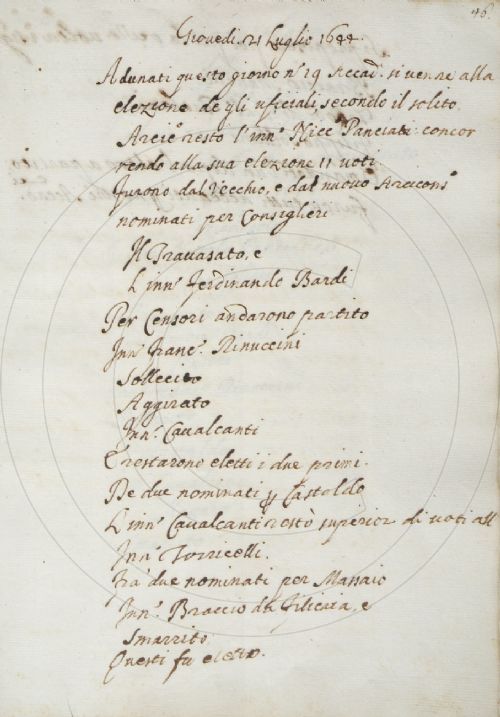 46.
Giovedi. 21 Luglio 1644.
Adunati questo giorno n.º 19 Accad. si venne alla
elezione degli uficiali, secondo il solito.
Arcic.º restò l'inn.º Nice Panciati: concor
rendo alla sua elezione 11 voti.
furono dal Vecchio, e dal nuovo Arcicons.º
nominati per Consiglieri
Il Travasato, e
L'inn.º Ferdinando Bardi
Per Censori andarono partito
Inn.º Franc.º Rinuccini
Sollecito
Aggirato
Inn.º Cavalcanti
E restarono eletti i due primi.
De due nominati Castaldo
L'inn.º Cavalcanti restò superior di voti all
Inn.º Torricelli.
fra due nominati per Massaio
Inn.º Braccio da Filicaia, e
Smarrito.
Questi fu eletto.